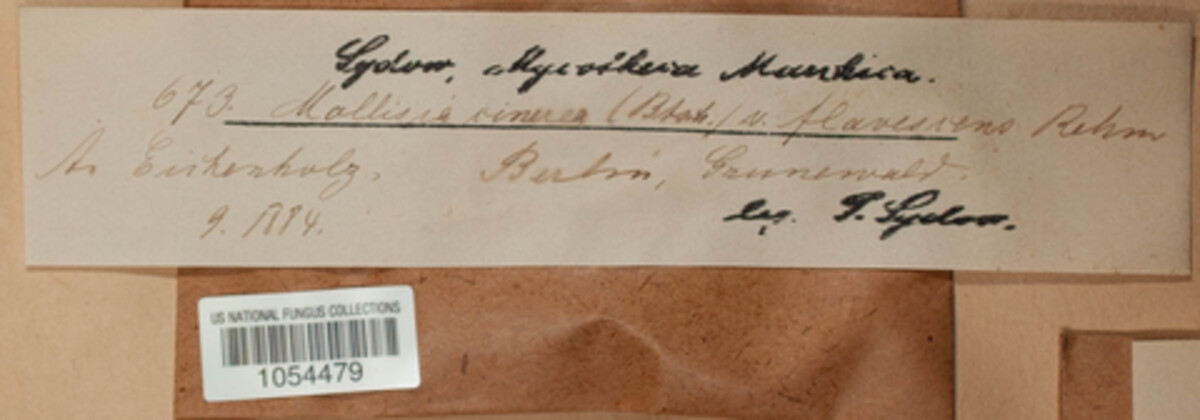 Sydow, Mycotheca Marchica.
673. Mollisia cinerea (Batsch.) v. flavescens Rehm
An Eichenholz. Berlin, Grunewald.
9. 1884. leg. P. Sydow.
US NATIONAL FUNGUS COLLECTIONS
1054479